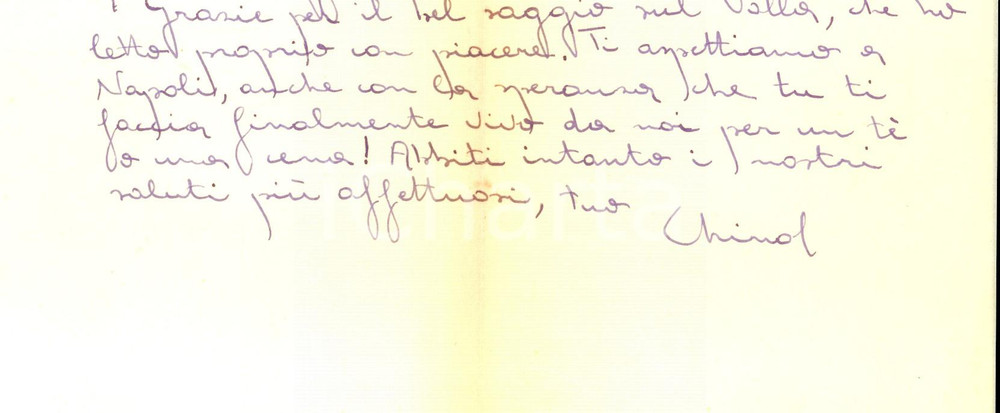 Grazie per il bel saggio sul Valla, che ho
letto proprio con piacere. Ti aspettiamo a
Napoli, anche con la speranza che tu ti
faccia finalmente vivo da noi per un tè
o una cena! Abbiti intanto i nostri
saluti più affettuosi, tuo
Chinol